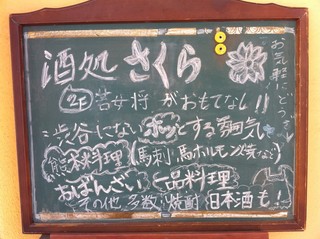 酒処 さくら
お気軽にどうぞ
2F 若女将 がおもてなし!!
渋谷にない ホッとする雰囲気
熊本料理 (馬刺 馬ホルモン焼など)
おばんざい 一品料理
その他 多数 焼酎 日本酒も!